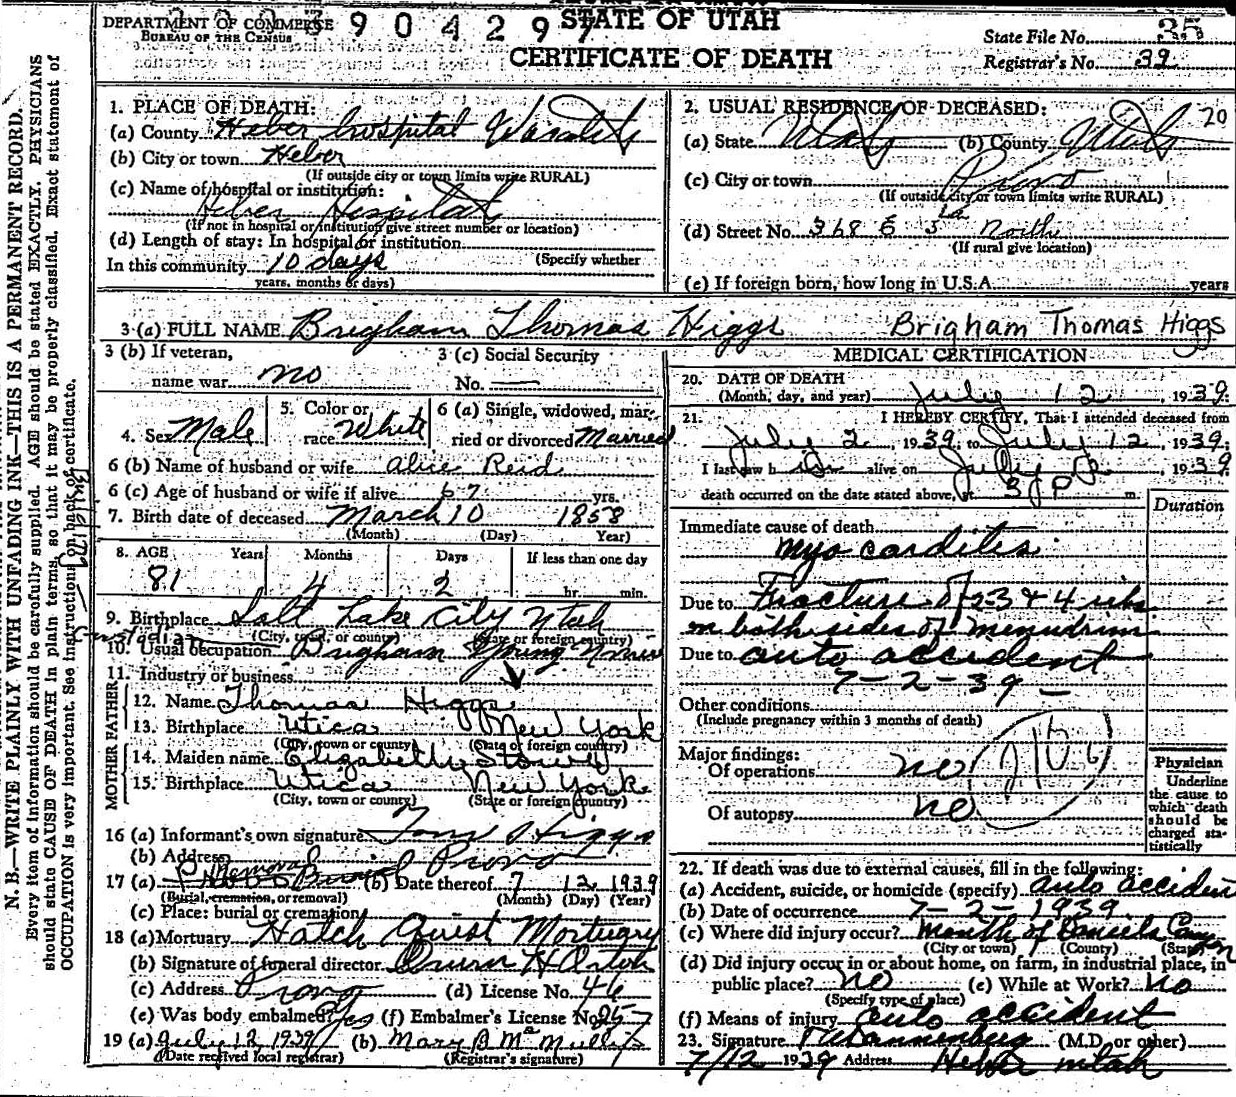 DEPARTMENT OF COMMERCE
BUREAU OF THE CENSUS
390429
STATE OF UTAH
CERTIFICATE OF DEATH
State File No. 35
Registrar's No. 39
N. B.—WRITE PLAINLY WITH UNFADING INK—THIS IS A PERMANENT RECORD.
Every item of information should be carefully supplied. AGE should be stated EXACTLY. PHYSICIANS
should state CAUSE OF DEATH in plain terms, so that it may be properly classified. Exact statement of
OCCUPATION is very important. See instructions on back of certificate.
1. PLACE OF DEATH:
(a) County Heber hospital Wasatch
(b) City or town Heber
(If outside city or town limits write RURAL)
(c) Name of hospital or institution:
Heber Hospital
(If not in hospital or institution give street number or location)
(d) Length of stay: In hospital or institution
(Specify whether
In this community 10 days
years, months or days)
2. USUAL RESIDENCE OF DECEASED: 20
(a) State Utah (b) County Utah
(c) City or town Provo
(If outside city or town limits write RURAL)
(d) Street No. 368 E 5 North
(If rural give location)
(e) If foreign born, how long in U.S.A. years
3 (a) FULL NAME Brigham Thomas Higgs Brigham Thomas Higgs
3 (b) If veteran,
name war no
3 (c) Social Security
No. —
4. Sex Male
5. Color or
race White
6 (a) Single, widowed, mar-
ried or divorced Married
6 (b) Name of husband or wife Alice Reid
6 (c) Age of husband or wife if alive 67 yrs.
7. Birth date of deceased March 10 1858
(Month) (Day) Year)
8. AGE Years Months Days If less than one day
81 4 2 hr. min.
9. Birthplace Salt Lake City Utah
(City, town, or county) (State or foreign country)
Custodian
10. Usual occupation Brigham Young
11. Industry or business
FATHER
12. Name Thomas Higgs
13. Birthplace Utica New York
(City, town or county) (State of foreign country)
MOTHER
14. Maiden name Elizabeth Stowell
15. Birthplace Utica New York
(City, town or county) (State or foreign country)
16 (a) Informant's own signature Tom Higgs
(b) Address Provo
Removal
17 (a) Burial (b) Date thereof 7 12 1939
(Burial, cremation, or removal) (Month) (Day) (Year)
(c) Place: burial or cremation
18 (a) Mortuary Hatch Guest Mortuary
(b) Signature of funeral director
(c) Address Provo (d) License No. 46
(e) Was body embalmed? Yes (f) Embalmer's License No. 257
19 (a) July 12 1939 (b) Mary B McMullin
(Date received local registrar) (Registrar's signature)
MEDICAL CERTIFICATION
20. DATE OF DEATH
(Month, day, and year) July 12, 1939.
21. I HEREBY CERTIFY, That I attended deceased from
July 2, 1939, to July 12, 1939.
I last saw him alive on July 12, 1939
death occurred on the date stated above, at 3 P m.
Duration
Immediate cause of death
myo cardites
Due to Fracture of 2-3 & 4 ribs
on both sides of
Due to auto accident
7-2-39 —
Other conditions
(Include pregnancy within 3 months of death)
Major findings:
Of operations no
Of autopsy no
Physician
Underline
the cause to
which death
should be
charged sta-
tistically
22. If death was due to external causes, fill in the following:
(a) Accident, suicide, or homicide (specify) auto accident
(b) Date of occurrence 7-2-1939
(c) Where did injury occur? mouth of Daniels Canyon
(City or town) (County) (State)
(d) Did injury occur in or about home, on farm, in industrial place, in
public place? no (e) While at Work? no
(Specify type of place)
(f) Means of injury auto accident
23. Signature (M.D. or other)
7/12 1939 Address Heber Utah